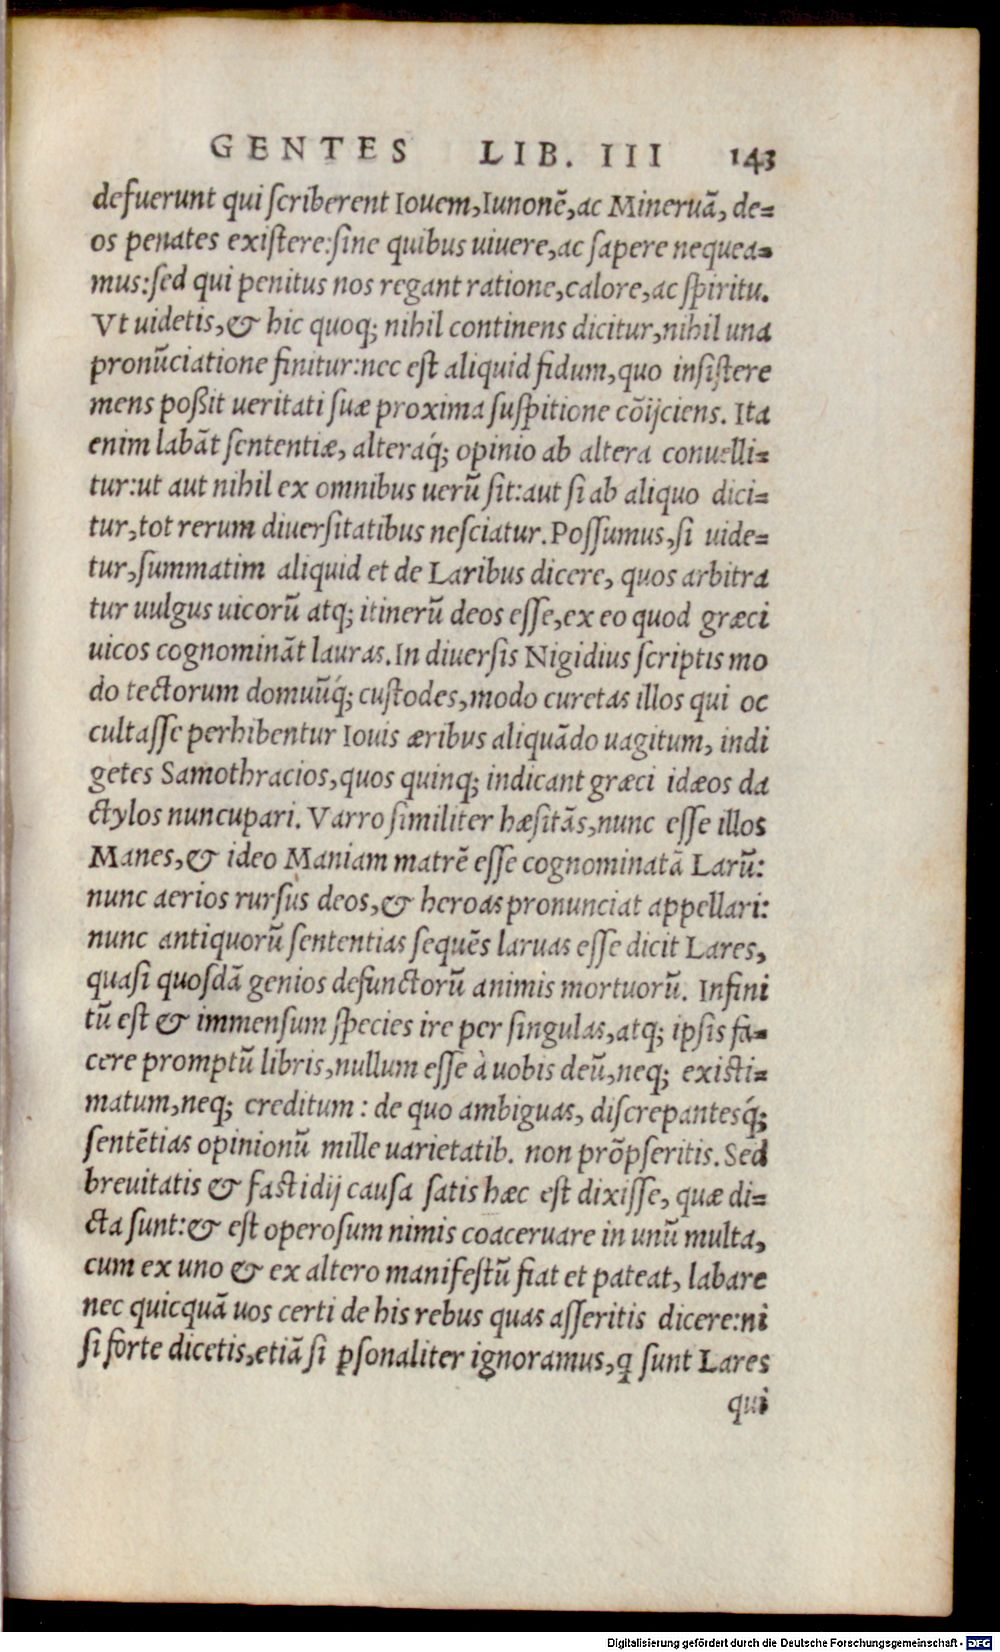 GENTES LIB. III 143
defuerunt qui ſcriberent Iouem,Iunonē,ac Mineruā, de=
os penates exiſtere:ſine quibus uiuere,ac ſapere nequea=
mus:ſed qui penitus nos regant ratione,calore,ac ſpiritu.
Vt uidetis,& hic quoq; nihil continens dicitur,nihil una
pronūciatione finitur:nec eſt aliquid fidum,quo inſiſtere
mens poßit ueritati ſuæ proxima ſuſpitione cōijciens. Ita
enim labāt ſententiæ, alteraq́; opinio ab altera conuelli=
tur:ut aut nihil ex omnibus uerū ſit:aut ſi ab aliquo dici=
tur,tot rerum diuerſitatibus neſciatur. Poſſumus,ſi uide=
tur,ſummatim aliquid et de Laribus dicere, quos arbitra
tur uulgus uicorū atq; itinerū deos eſſe,ex eo quod græci
uicos cognomināt lauras.In diuerſis Nigidius ſcriptis mo
do tectorum domuūq́; cuſtodes,modo curetas illos qui oc
cultaſſe perhibentur Iouis æribus aliquādo uagitum, indi
getes Samothracios,quos quinq; indicant græci idæos da
ctylos nuncupari. Varro ſimiliter hæſitās,nunc eſſe illos
Manes,& ideo Maniam matrē eſſe cognominatā Larū:
nunc aerios rurſùs deos,& heroas pronunciat appellari:
nunc antiquorū ſententias ſequēs laruas eſſe dicit Lares,
quaſi quoſdā genios defunctorū animis mortuorū. Infini
tū eſt & immenſum ſpecies ire per ſingulas,atq; ipſis fa=
cere promptū libris,nullum eſſe à uobis deū,neq; exiſti=
matum,neq; creditum : de quo ambiguas, diſcrepantesq́;
ſentētias opinionū mille uarietatib. non prōpſeritis. Sed
breuitatis & faſtidij cauſa ſatis hæc eſt dixiſſe, quæ di=
cta ſunt:& eſt operoſum nimis coaceruare in unū multa,
cum ex uno & ex altero manifeſtū fiat et pateat, labare
nec quicquā uos certi de his rebus quas aſſeritis dicere:ni
ſi forte dicetis,etiā ſi ꝑſonaliter ignoramus,ꝗ ſunt Lares
qui
Digitalisierung gefördert durch die Deutsche Forschungsgemeinschaft - DFG